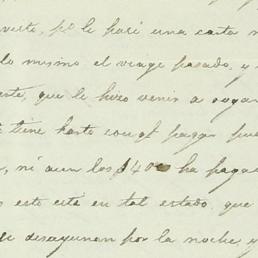 verte, po le pasé una carta
lo mismo el viage pasado y
este, que le hizo venir a rogar
tiene hasta con qe pagar pues
ni aun los $400 ha paga
este está en tal estado, que
se desayunan por la noche y